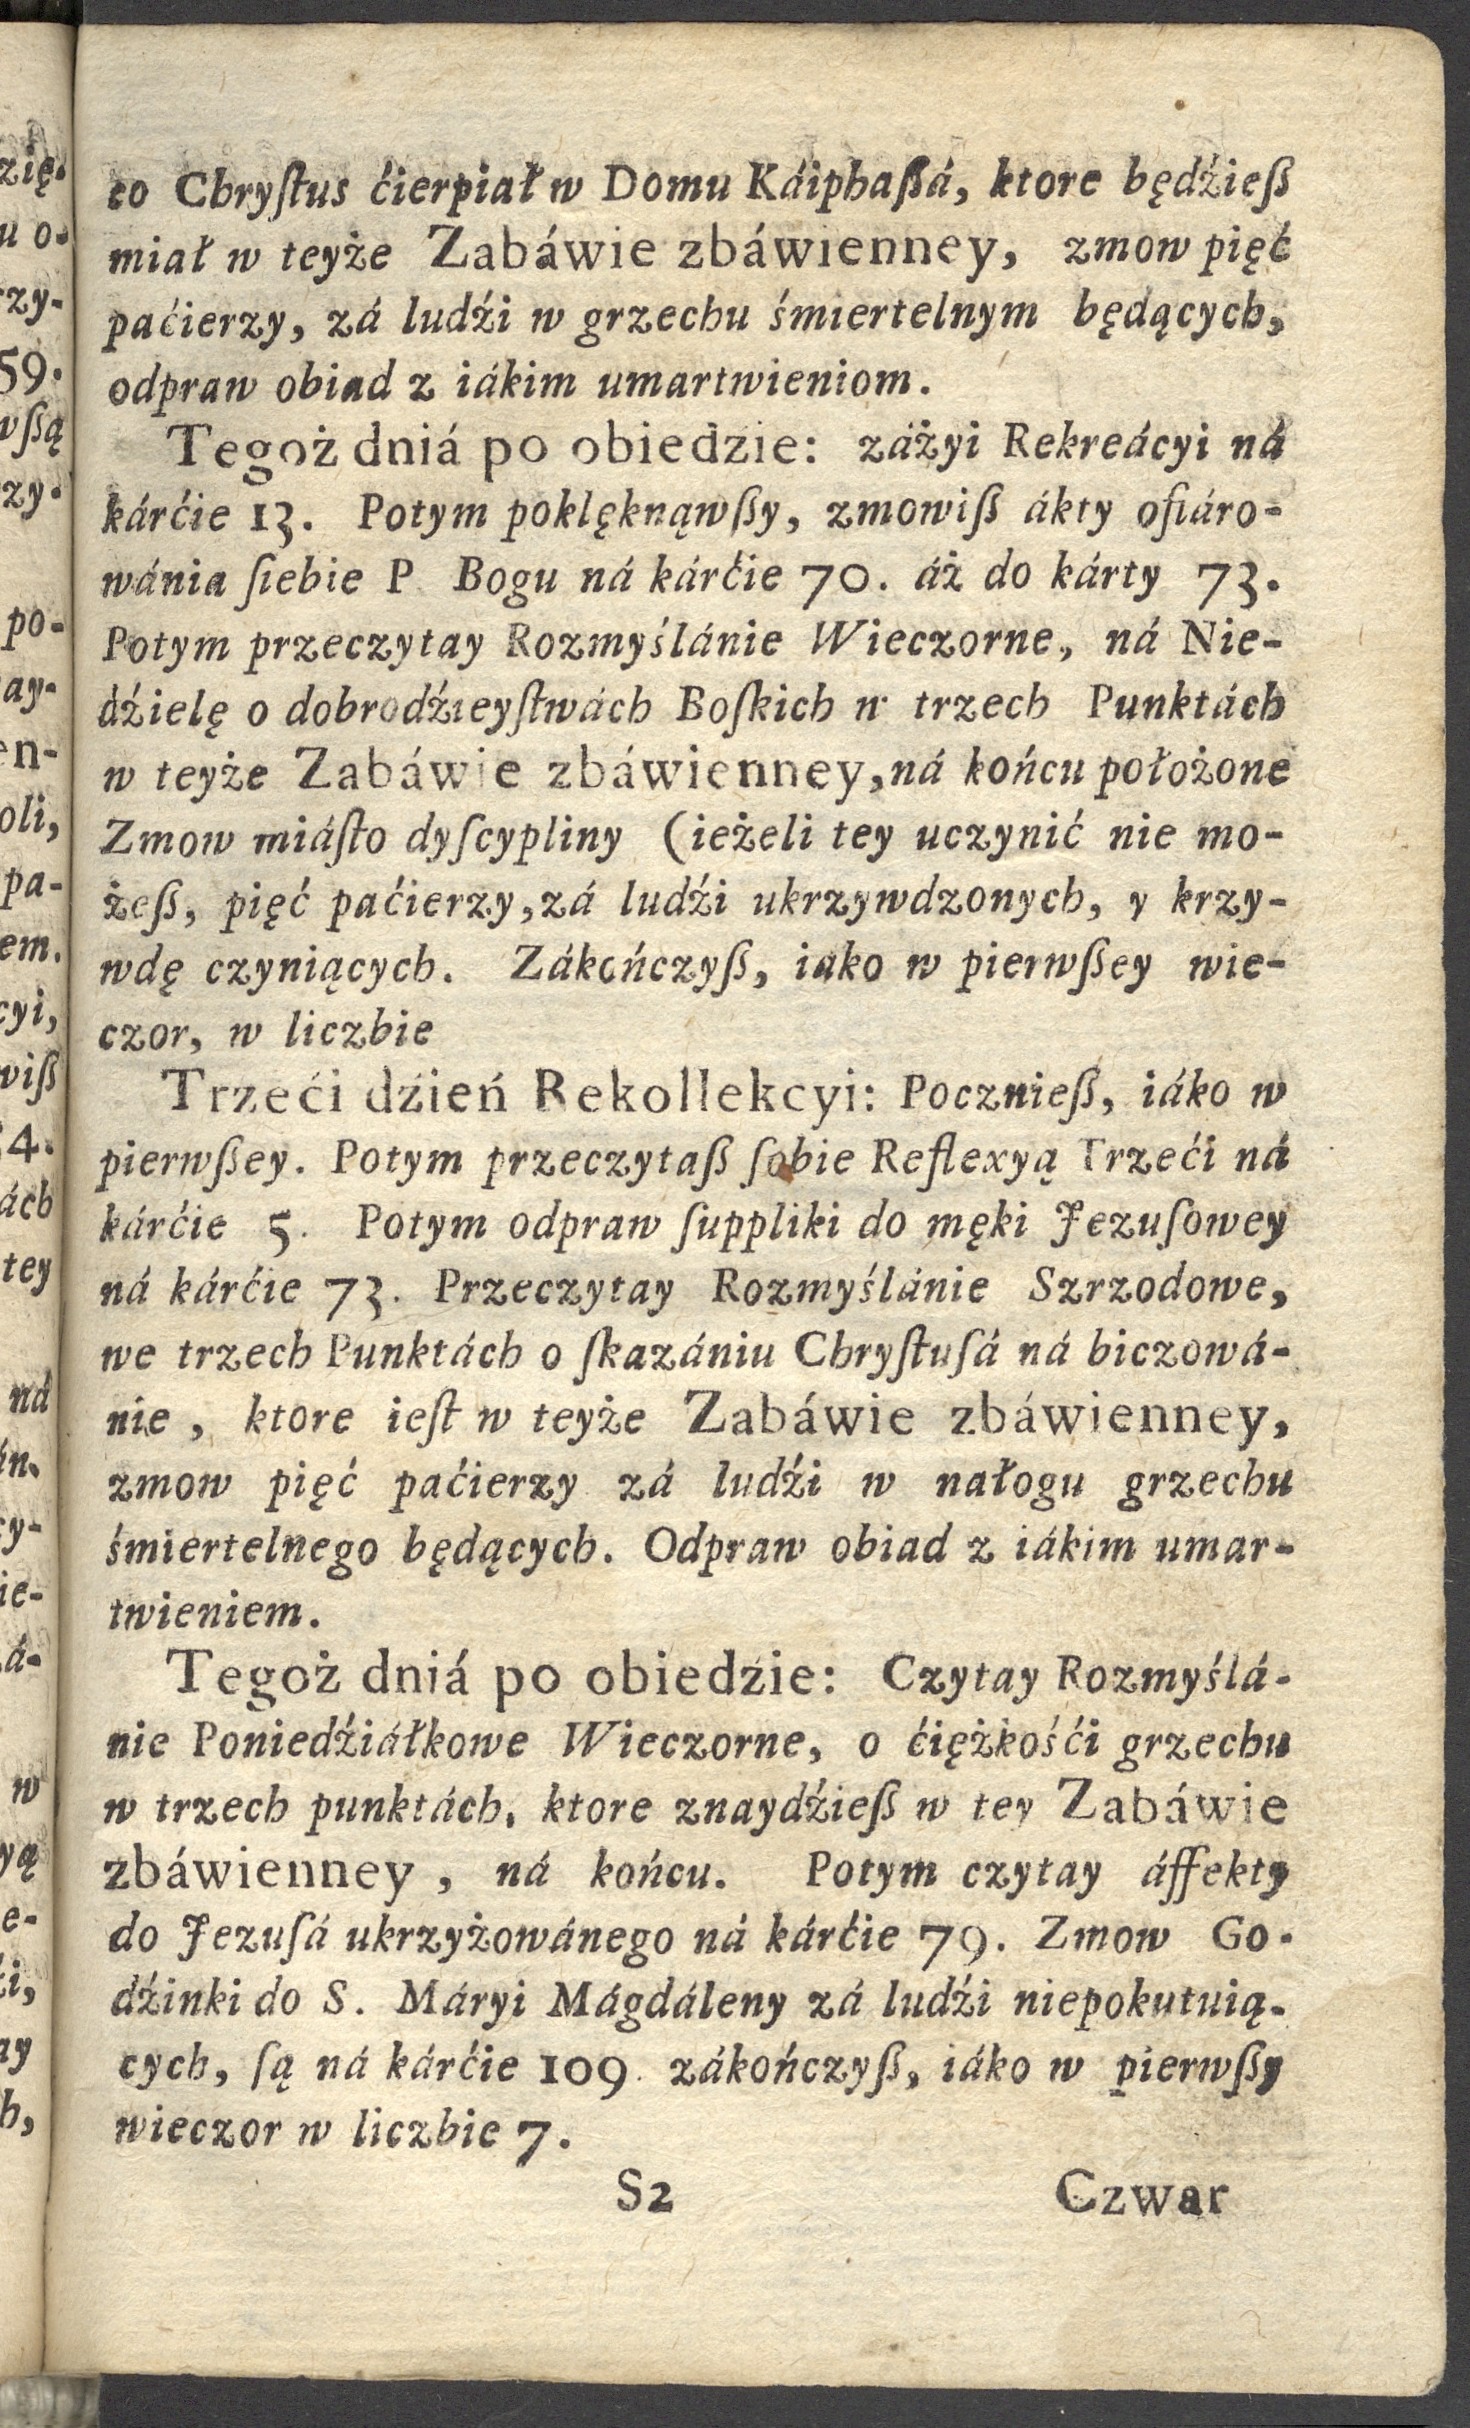 co Chryſtus ćierpiał w Domu Káiphaßá, ktore będźieß
miał w teyże Zabáwie zbáwienney, zmow pięć
paćierzy, zá ludźi w grzechu śmiertelnym będących,
odpraw obiad z iákim umartwieniom.
Tegoż dniá po obiedzie: záżyi Rekreácyi ná
kárćie 13. Potym poklęknąwßy, zmowiß ákty ofiáro-
wánia ſiebie P Bogu ná kárćie 70. áż do kárty 73.
Potym przeczytay Rozmyślánie Wieczorne, ná Nie-
dźielę o dobrodźieyſtwách Boſkich w trzech Punktách
w teyże Zabáwie zbáwienney, ná końcu położone
Zmow miáſto dyſcypliny (ieżeli tey uczynić nie mo-
żeß, pięć paćierzy, zá ludźi ukrzywdzonych, y krzy-
wdę czyniących. Zákończyß, iako w pierwßey wie-
czor, w liczbie
Trzeći dźień Rekollekcyi: Pocznieß, iáko w
pierwßey. Potym przeczytaß ſobie Reflexyą Trzeći ná
kárćie 5. Potym odpraw ſuppliki do męki Jezuſowey
ná kárćie 73. Przeczytay Rozmyślánie Szrzodowe,
we trzech Punktách o ſkazániu Chryſtuſá ná biczowá-
nie, ktore ieſt w teyże Zabáwie zbáwienney,
zmow pięć paćierzy zá ludźi w nałogu grzechu
śmiertelnego będących. Odpraw obiad z iákim umar-
twieniem.
Tegoż dniá po obiedźie: Czytay Rozmyślá-
nie Poniedźiáłkowe Wieczorne, o ćiężkośći grzechu
w trzech punktách, ktore znaydźieß w tey Zabáwie
zbáwienney, ná końcu. Potym czytay áffekty
do Jezuſá ukrzyżowánego ná kárćie 79. Zmow Go-
dźinki do S. Máryi Mágdáleny zá ludźi niepokutuią-
cych, ſą ná kárćie 109. zákończyß, iáko w pierwßy
wieczor w liczbie 7.
S2 Czwar